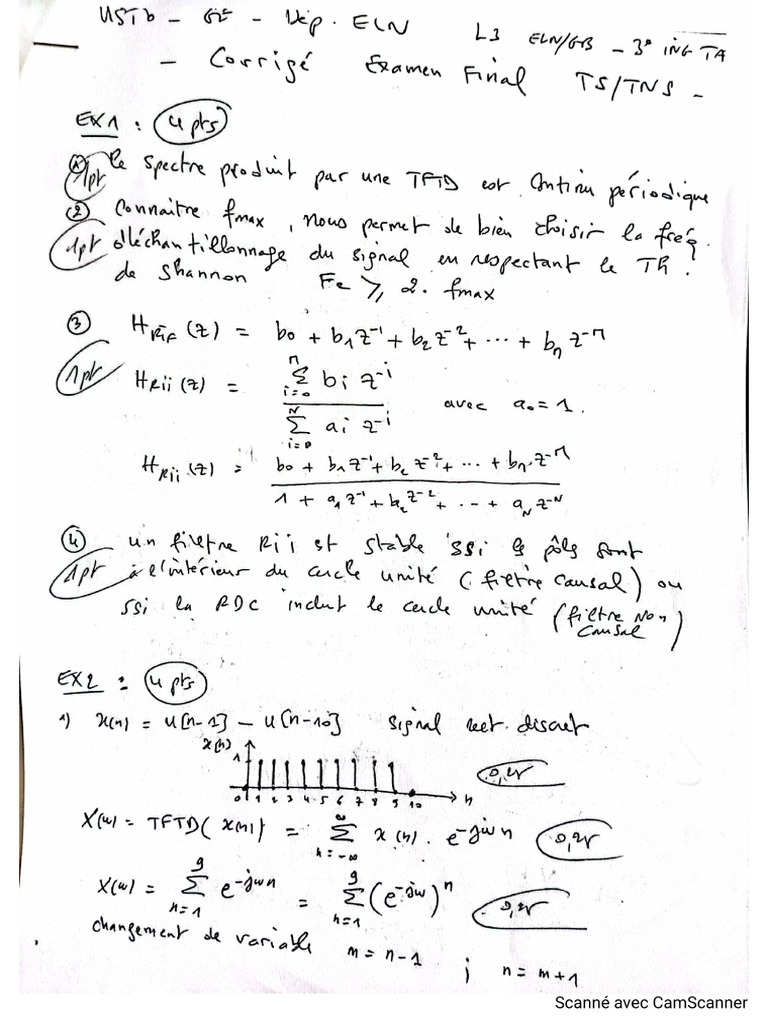 USTB - GE - Dép. ELN L3 ELN/GB - 3° ING TA
- Corrigé Examen Final TS/TNS -
EX1 : 4 pts
① Le spectre produit par une TFTD est Continu périodique
1pt
② Connaitre fmax, nous permet de bien choisir la fréq.
1pt d'échantillonnage du signal en respectant le Th.
de Shannon Fe ⩾ 2. fmax
③ H_RiF (z) = b0 + b1 z^-1 + b2 z^-2 + ... + bn z^-n
1pt H_Rii (z) = \frac{\sum_{i=0}^{n} bi z^-i}{\sum_{i=0}^{N} ai z^-i} avec a0 = 1.
H_Rii (z) = \frac{b0 + b1 z^-1 + b2 z^-2 + ... + bn z^-n}{1 + a1 z^-1 + a2 z^-2 + ... + aN z^-N}
④ un filtre Rii est stable ssi les pôles sont
1pt à l'intérieur du cercle unité (filtre Causal) ou
ssi la RDC inclut le cercle unité (filtre Non
Causal)
EX2 : 4 pts
1) x(n) = u[n-1] - u[n-10] Signal rect. discret
x(n)
1
0 1 2 3 4 5 6 7 8 9 10 n
0,25
X(ω) = TFTD( x(n)) = \sum_{n=-∞}^{∞} x(n). e^-jωn 0,25
X(ω) = \sum_{n=1}^{9} e^-jωn = \sum_{n=1}^{9} (e^-jω)^n 0,25
changement de variable m = n-1 ; n = m+1
Scanné avec CamScanner